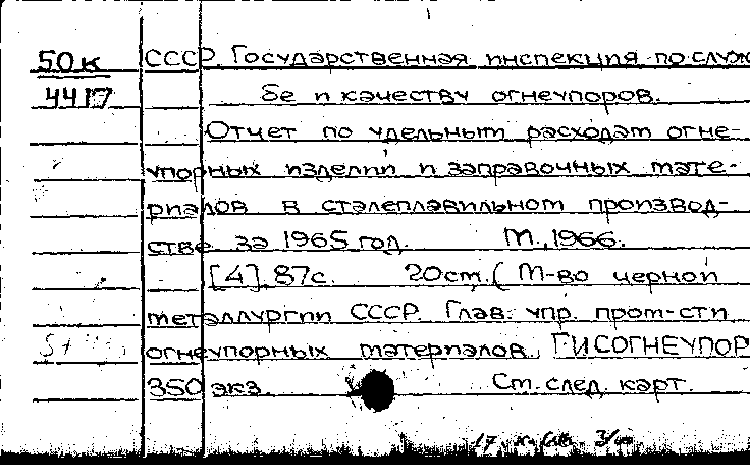 50к СССР. Государственная инспекция по служ
4417 бе и качеству огнеупоров.
Отчет по удельным расходам огне-
упорных изделий и заправочных мате-
риалов в сталеплавильном производ-
стве за 1965 год. М., 1966.
[4], 87с. 20см. (М-во черной
металлургии СССР. Глав. упр. пром-сти
огнеупорных материалов. ГИСОГНЕУПОР
350 экз. См. след. карт.